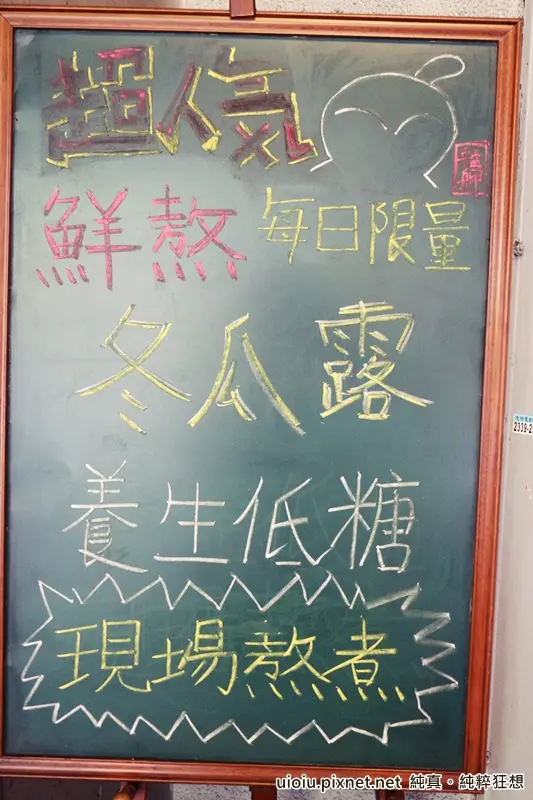 超人氣
鮮熬 每日限量
冬瓜露
養生低糖
現場熬煮
uioiu.pixnet.net 純真。純粹狂想